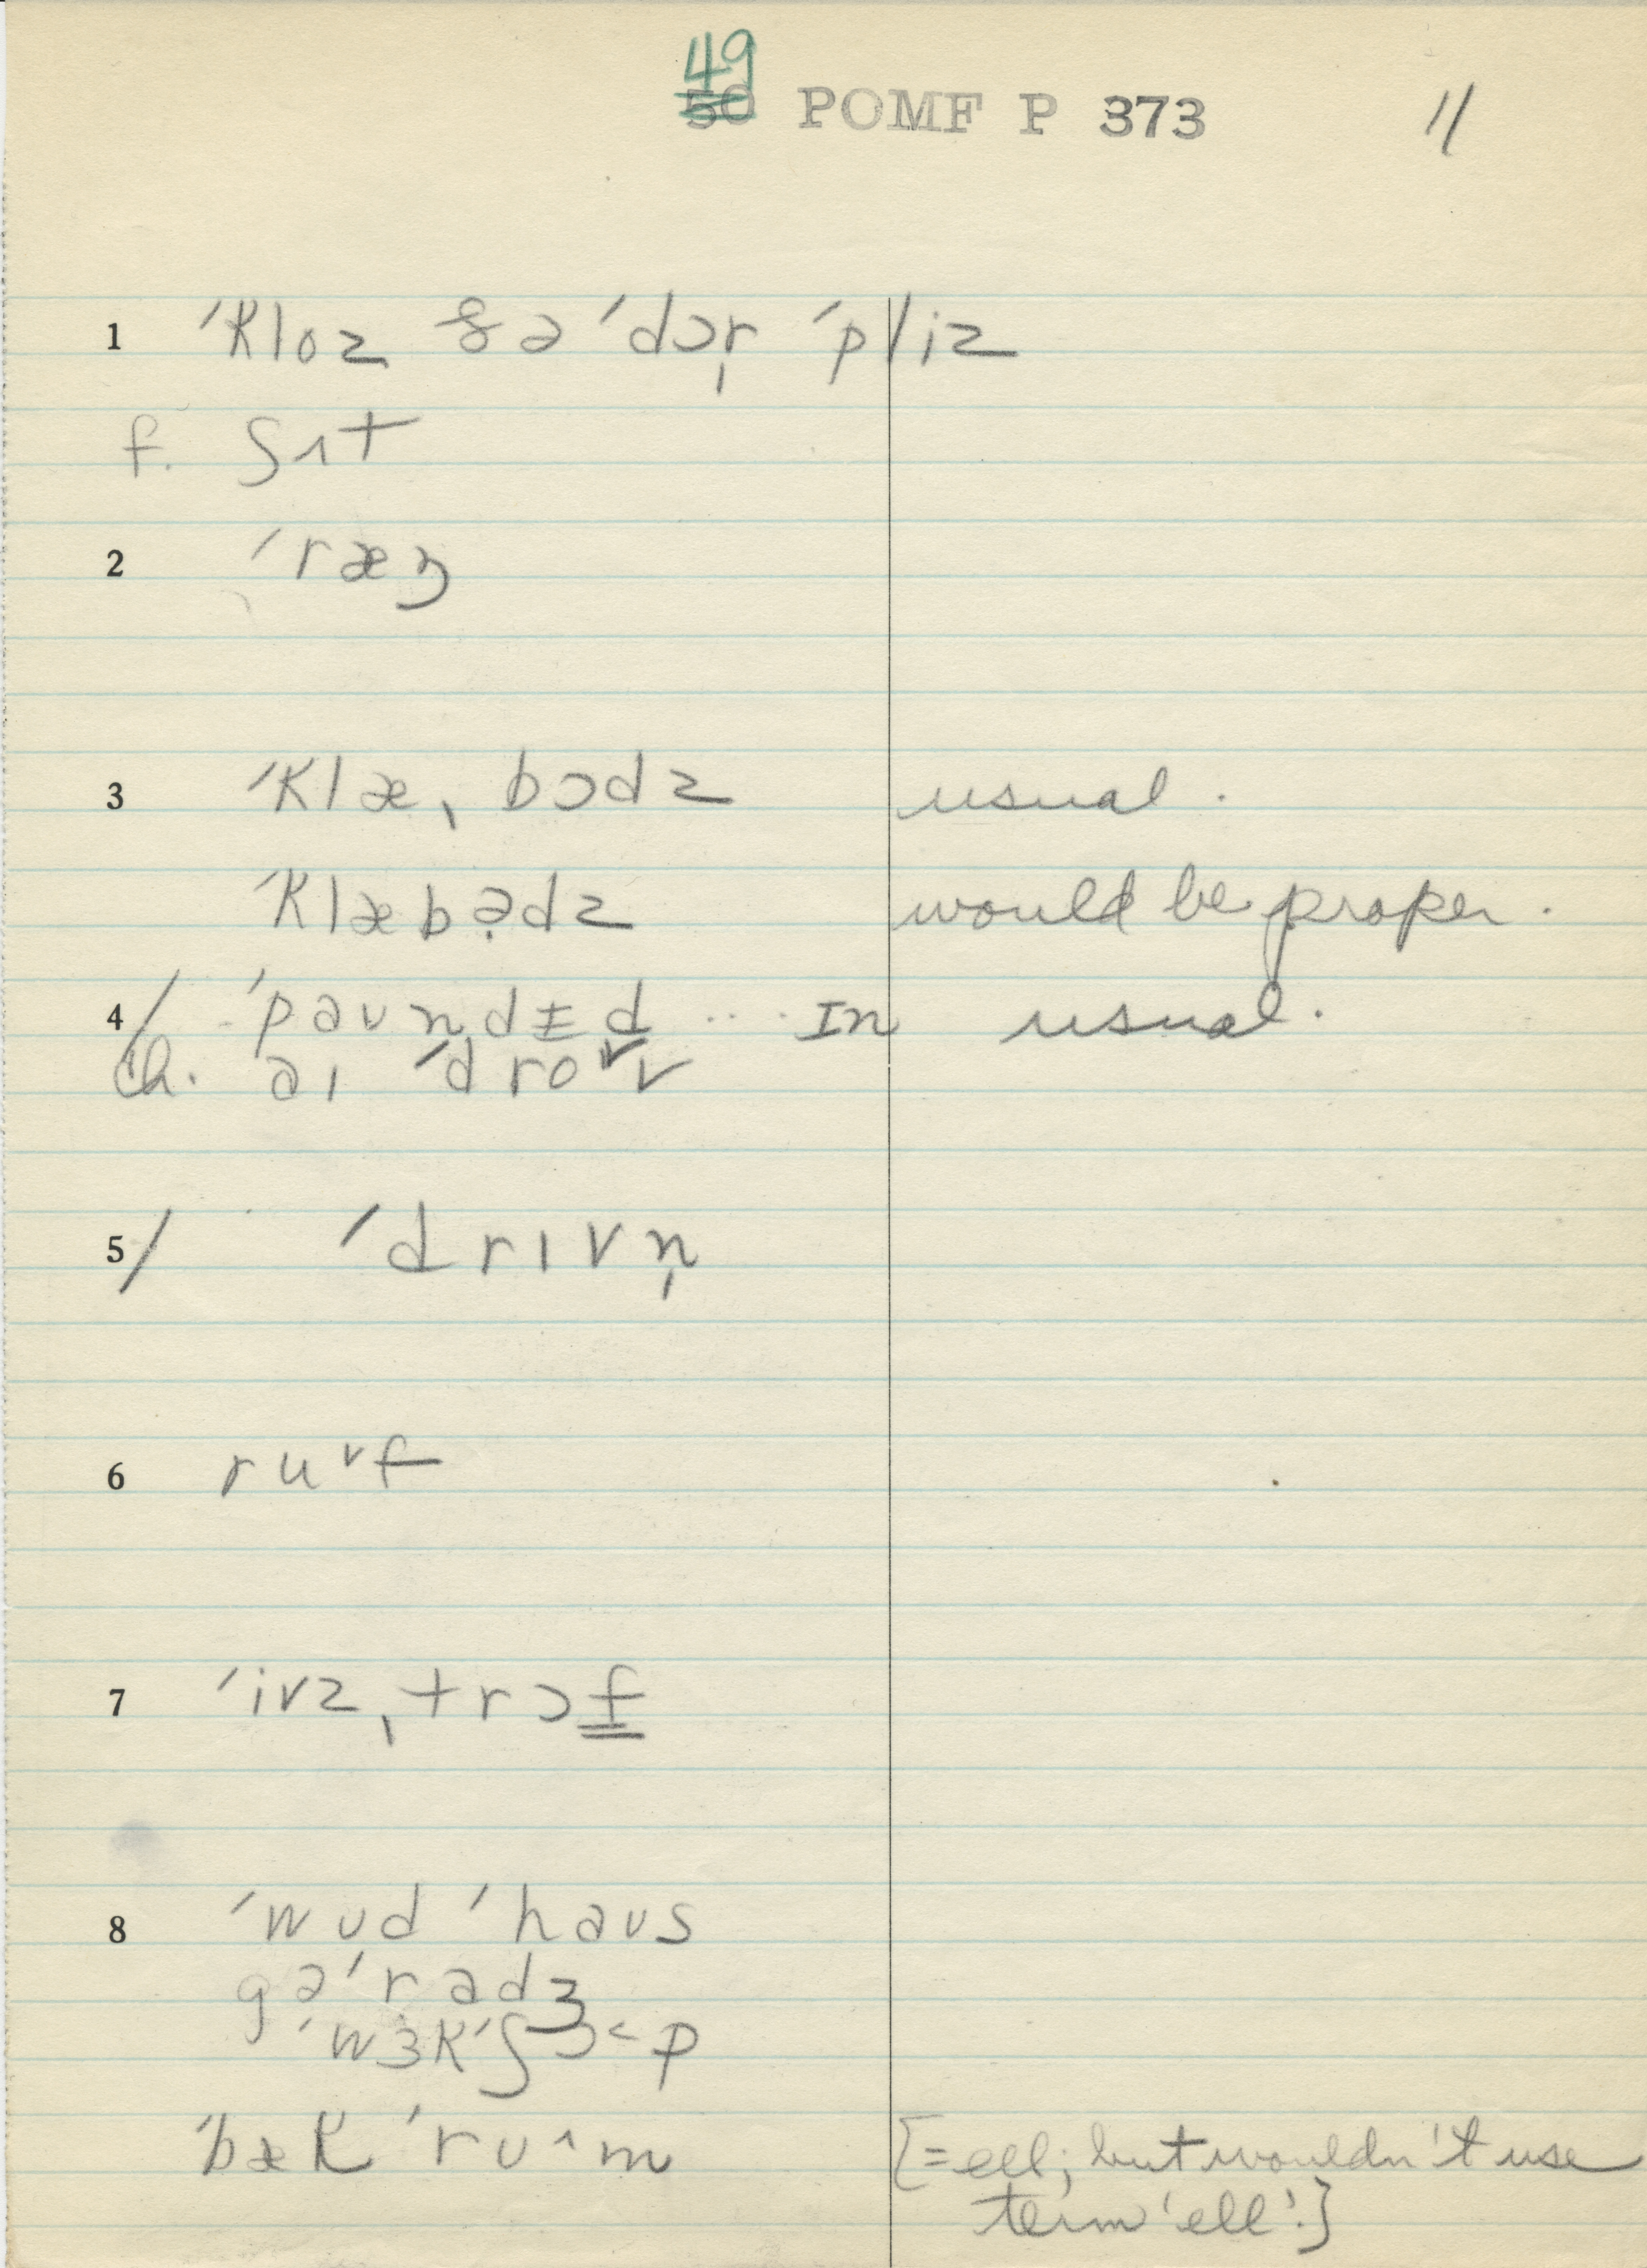 49
50 POMF P 373 11
1 ˈkloz ðə ˈdɔr̩ ˈpliz
f. ʃɪt
2 ˈræŋ
3 ˈklæˌbɔdz usual.
ˈklæbə̣dz would be proper.
4/ ˈpaʊndɨd .... ɪn usual.
ch. aɪ ˈdroˇv
5/ ˈdrɪvn̩
6 ruˇf
7 ˈivzˌtrɔf
8 ˈwʊd ˈhaʊs
gəˈradʒ
ˈwɜkˈʃɔ˂p
ˈbækˈrʊ^m [=ell; but wouldn't use
term 'ell'.]